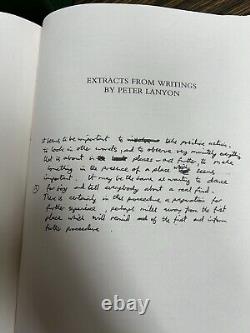 EXTRACTS FROM WRITINGS
BY PETER LANYON
It seems to be important to take positive action,
to look in other words, and to observe very minutely everything
that is about in places - and further, to make
something in the presence of a place seems
important. It may be the same as wanting to dance
for joy and tell everybody about a real find.
There is certainly in this procedure a preparation for
further experience, perhaps miles away from the first
place which will remind one of the first and inform
further procedure.
ebay